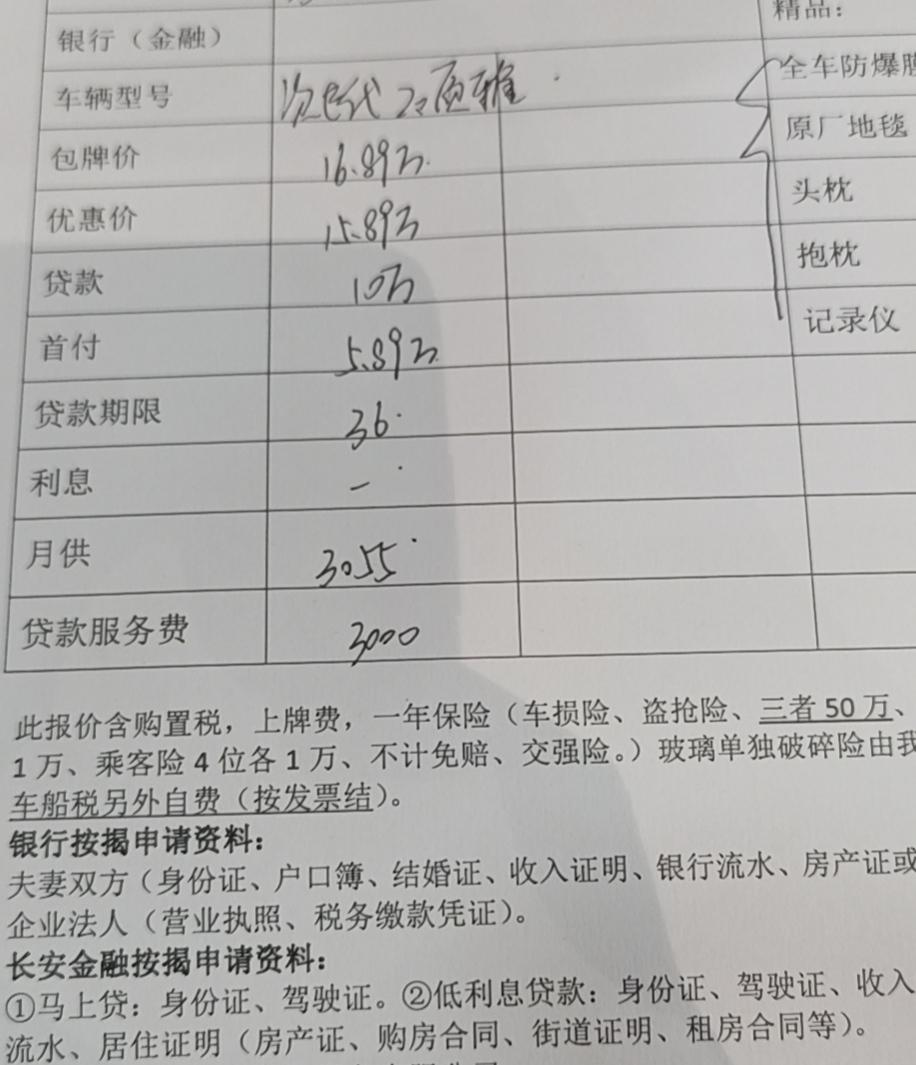 精品：
银行（金融）
车辆型号 次世代
全车防爆膜
原厂地毯
包牌价 16.89万
头枕
优惠价 15.89万
抱枕
贷款 10万
记录仪
首付 5.89万
贷款期限 36
利息 一
月供 3055
贷款服务费 3000
此报价含购置税，上牌费，一年保险（车损险、盗抢险、三者50万、
1万、乘客险4位各1万、不计免赔、交强险。）玻璃单独破碎险由我
车船税另外自费（按发票结）。
银行按揭申请资料：
夫妻双方（身份证、户口簿、结婚证、收入证明、银行流水、房产证或
企业法人（营业执照、税务缴款凭证）。
长安金融按揭申请资料：
①马上贷：身份证、驾驶证。②低利息贷款：身份证、驾驶证、收入
流水、居住证明（房产证、购房合同、街道证明、租房合同等）。